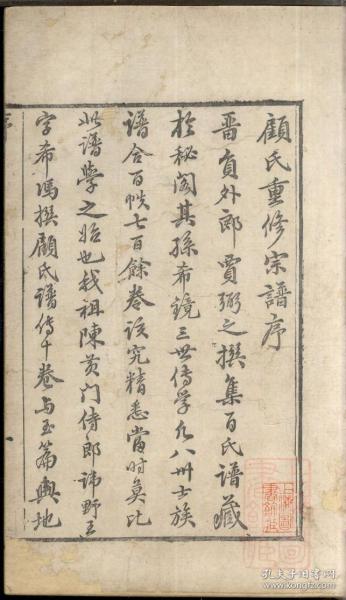 顧氏重修宗譜序
晋員外郎賈弼之撰集百氏譜藏
於秘閣其孫希鏡三世傳学凡八卅士族
譜合百帙七百餘卷該究精悉當时莫比
此譜學之始也我祖陳黄门侍郎諱野王
字希馮撰顧氏譜傳十卷与玉篇輿地
孔夫子旧书网
kongfz.com